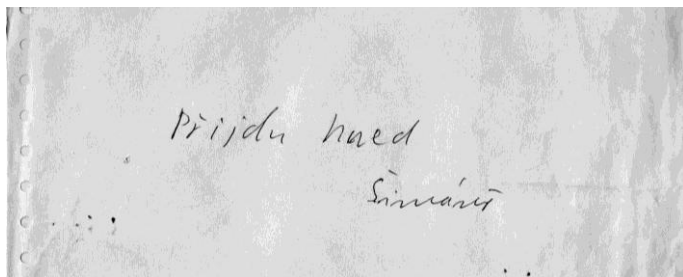 Přijdu hned
Šimáně